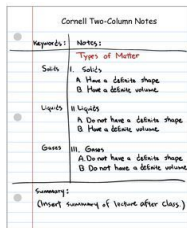 Cornell Two-Column Notes
Keywords: Notes:
Types of Matter
Solids I. Solids
A Have a definite shape
B Have a definite volume
Liquids II Liquids
A Do not have a definite shape
B Have a definite volume
Gases III. Gases
A. Do not have a definite shape
B Do not have a definite volume
Summary:
(Insert summary of lecture after class.)